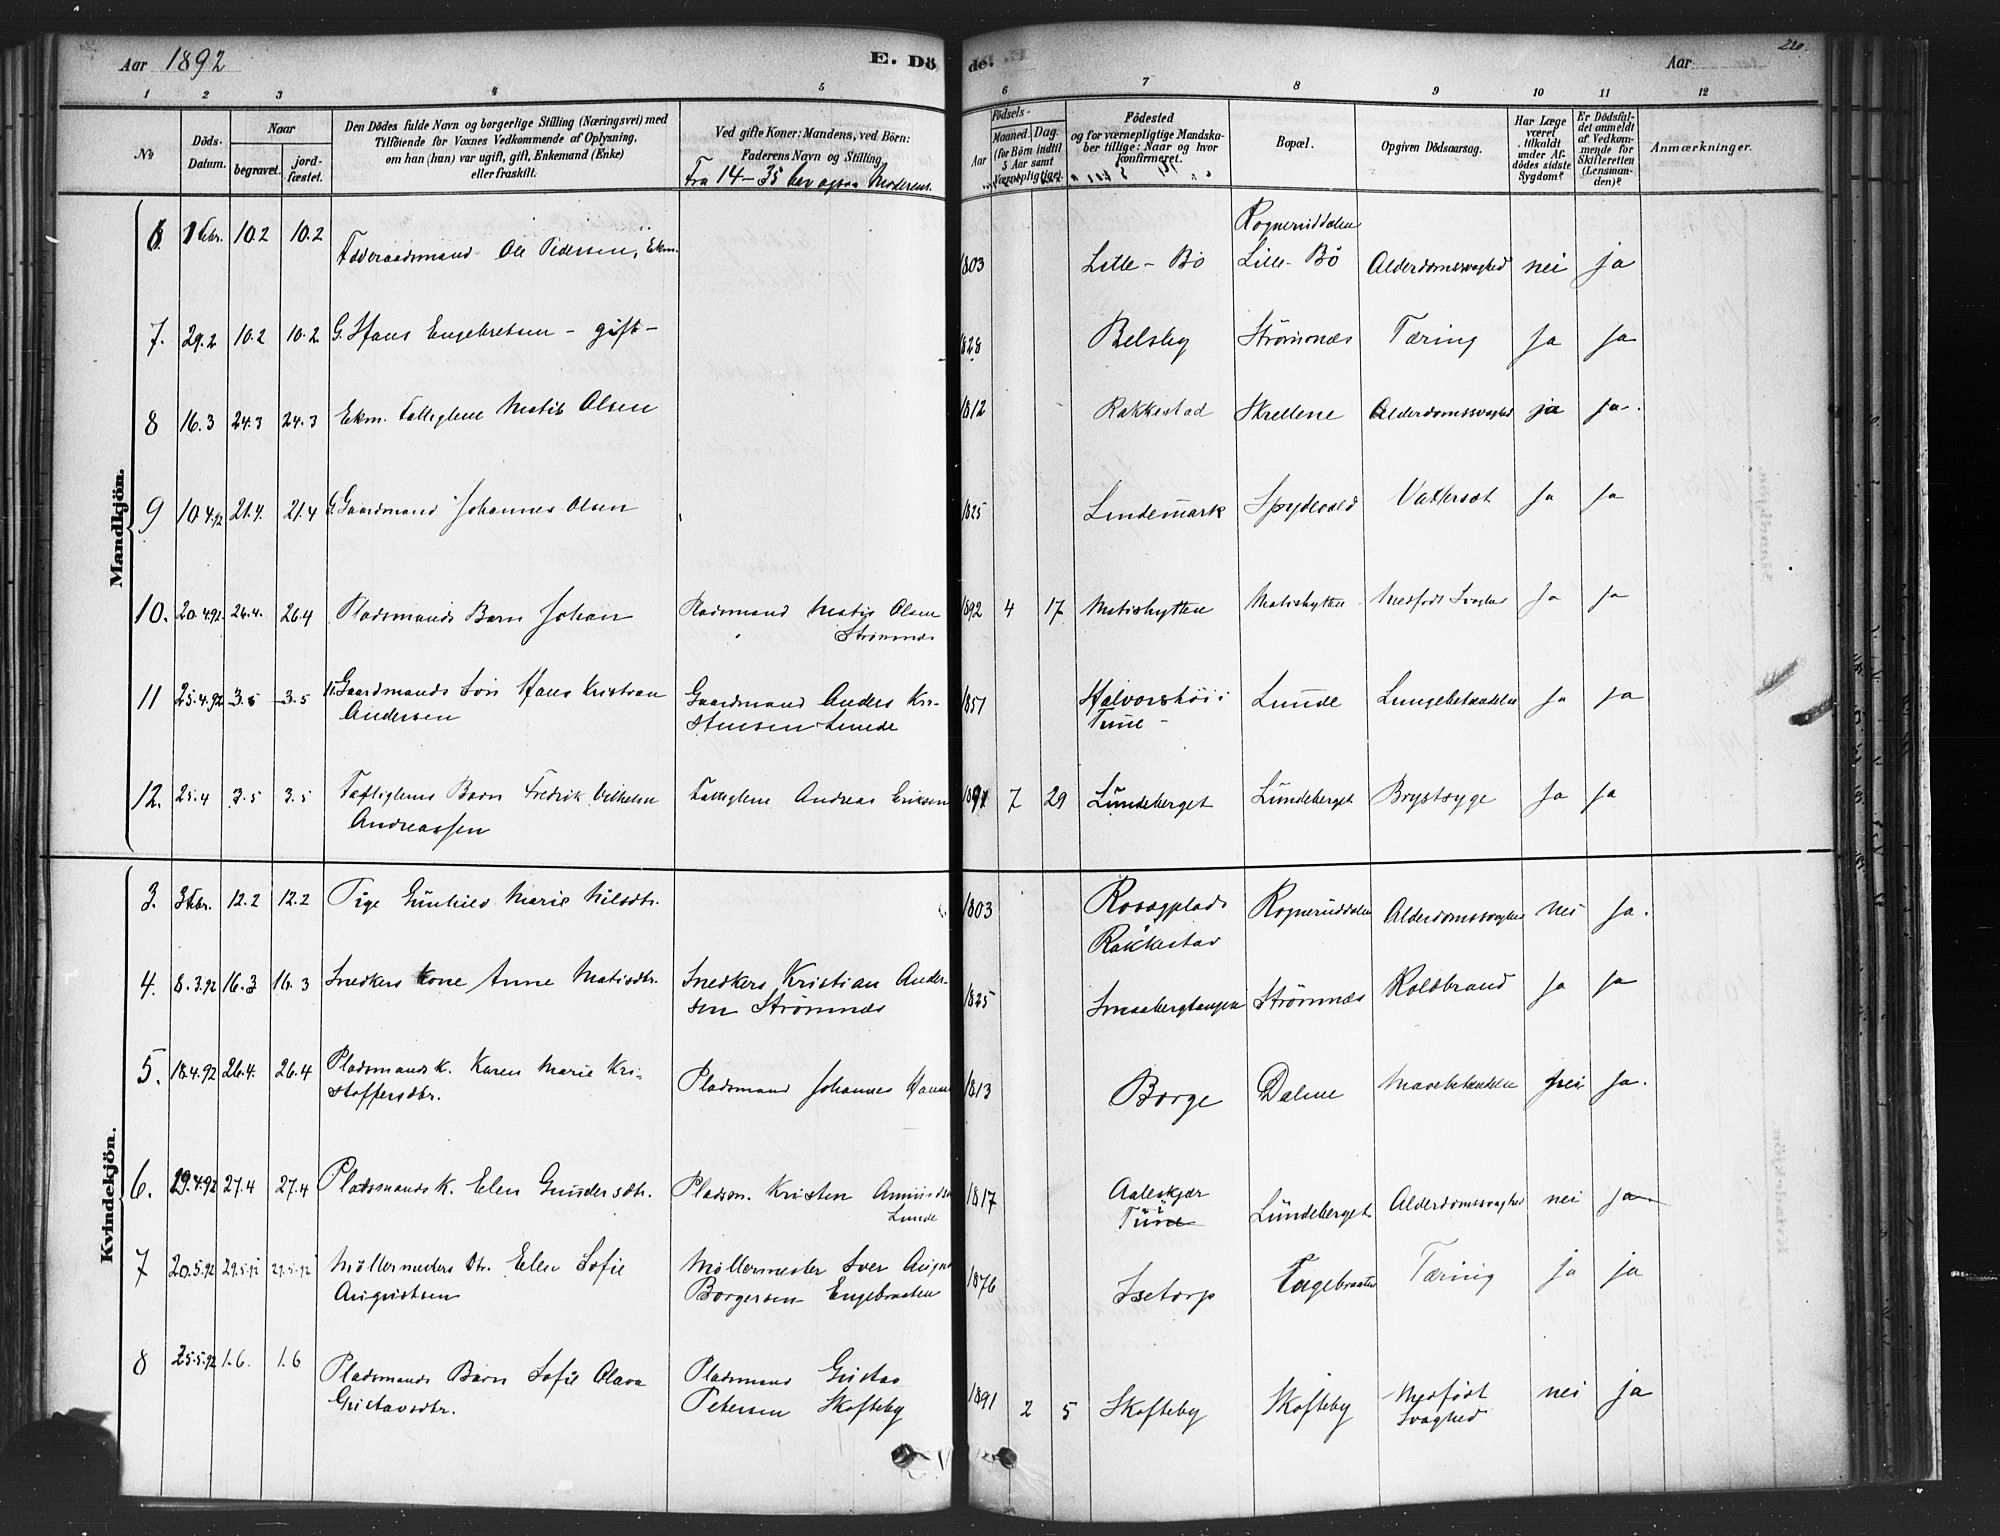 Aar 1892
E. Dö
de.
Aar
220.
1 2 3 4 5 6 7 8 9 10 11 12
No
Döds-
Datum.
Naar
begravet.
jord-
fæstet.
Den Dödes fulde Navn og borgerlige Stilling (Næringsvei) med
Tilföiende for Voxnes Vedkommende af Oplysning,
om han (hun) var ugift, gift, Enkemand (Enke)
eller fraskilt.
Ved gifte Koner: Mandens, ved Börn:
Faderens Navn og Stilling.
Fra 14-35 bev ogsaa Moderens.
Födsels-
Aar
Maaned. Dag.
(for Börn indtil
5 Aar samt
Værnepligtige).
Födested
og for værnepligtige Mandska-
ber tillige: Naar og hvor
Konfirmeret.
Bopæl.
Opgiven Dödsaarsag.
Har Læge
været
tilkaldt
under Af-
dödes sidste
Sygdom?
Er Dödsfal-
det anmeldt
af Vedkom-
mende for
Skifteretten
(Lensman-
den)?
Anmærkninger.
Mandkjön.
Rogneruddalen
6. 1 Febr. 10.2 10.2 Föderaadsmand Ole Pedersen, Ekm. 1803 Lille-Bö Lille-Bö Alderdomssvaghed nei ja
7. 29.2 10.2 10.2 G. Hans Engebretsen - gift- 1828 Belsby Strömnæs Tæring Ja Ja
8 16.3 24.3 24.3 Ekm. Fattiglem Matis Olsen 1812 Rakkestad Skrellene Alderdomssvaghed ja ja.
9 10.4.92 21.4. 21.4 G. Gaardmand Johannes Olsen 1825 Lundemark Spydevold Vattersot Ja Ja
10. 20.4.92. 26.4. 26.4 Pladsmands Barn Johan Pladsmand Matis Olsen 1892 4 17 Matishytten Matishytten Medfödt Svaghed Ja Ja
Strömnæs
11 25.4.92 3.5 3.5 Gaardmands Sön Hans Kristian Gaardmand Anders Kri- 1851 Halvorshöi i Lunde Lungebetændelse Ja Ja
Andersen stensen Lunde Tune -
12. 25.4 3.5 3.5 Fattiglems Barn Fredrik Vilhelm Fattiglem Andreas Eriksen 1891 7 29 Lundeberget Lundeberget Brystsyge Ja Ja
Andreassen
Kvindekjön.
3. 3 Febr. 12.2 12.2 Pige Gunhild Marie Nilsdtr. 1803 Rosægplads Rogneruddalen Alderdomssvaghed nei Ja.
Rakkestad
4. 8.3.92 16.3 16.3 Snedkers Kone Anne Matisdtr. Snedkers Kristian Ander- 1825 Smaabergtangen Strömnæs Koldbrand Ja Ja
sen Strömnæs
5. 18.4.92 26.4. 26.4 Pladsmands K. Karen Marie Kri- Pladsmand Johannes 1813 Borge Dalene Mavebetændelse nei Ja.
stoffersdtr.
6. 19.4.92 27.4 27.4 Pladsmands K. Elen Gundersdtr. Pladsm. Kristen Amunds 1817 Aaleskjær Lundeberget Alderdomssvaghed nei ja
Lunde Tune
7 20.5.92 29.5.92 29.5.92 Möllermesters Dtr. Elen Sofie Möllermester Sver August 1876 Isetorp Engebraaten Tæring ja ja
Augustsen Borgersen Engebraaten
8 25.5.92 1.6. 1.6 Pladsmands Barn Sofie Olava Pladsmand Gustav 1891 2 5 Skofteby Skofteby Medfödt nei ja
Gustavsdtr. Petersen Skofteby Svaghed